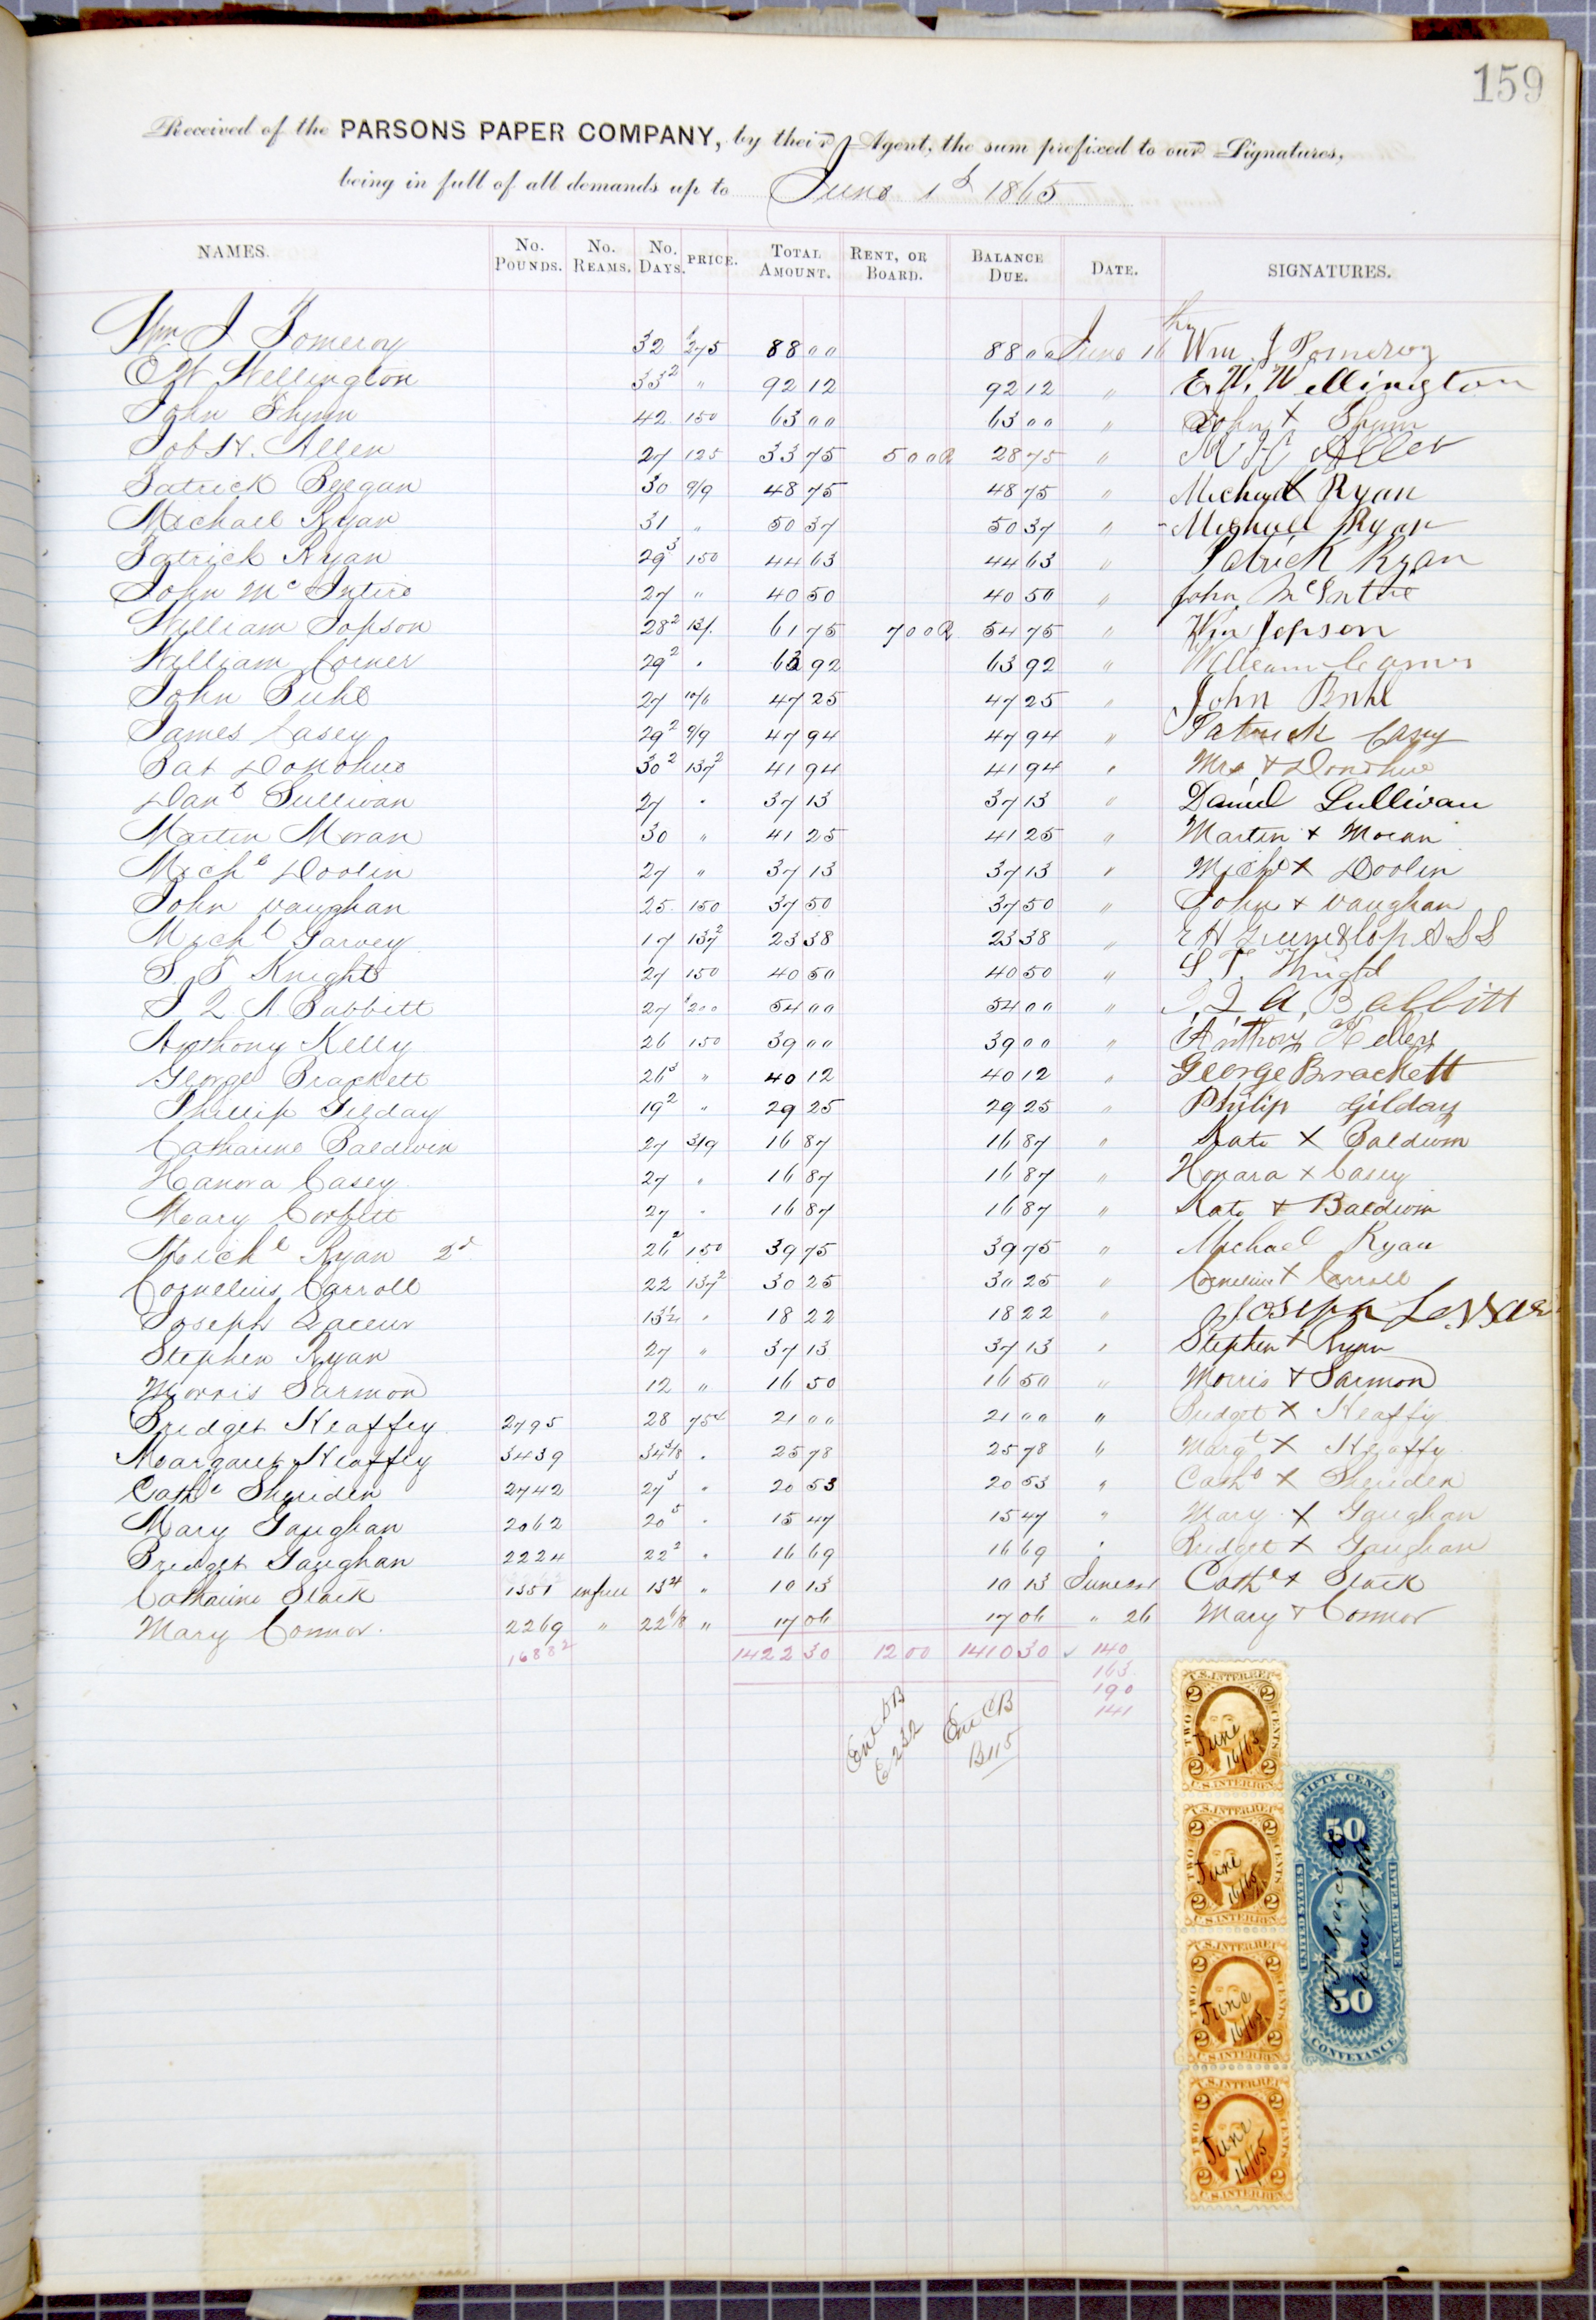 159
Received of the PARSONS PAPER COMPANY, by their Agent, the sum prefixed to our Signatures,
being in full of all demands up to June 1st 1865
NAMES. No. Pounds. No. Reams. No. Days. PRICE. Total Amount. Rent, or Board. Balance Due. Date. SIGNATURES.
Wm J Pomeroy 32 $275 88 00 88 00 June 16 Wm J Pomeroy
E W Wellington 33² " 92 12 92 12 " E. W. Wellington
John Flynn 42 150 63 00 63 00 " John X Flynn
Job H. Allen 27 125 33 75 5 00 R 28 75 " Allen
Patrick Beegan 30 9/9 48 75 48 75 " Michael X Ryan
Michael Ryan 31 " 50 37 50 37 " Michall Ryan
Patrick Ryan 29³ 150 44 63 44 63 " Patrick Ryan
John McIntire 27 " 40 50 40 50 " John McIntire
William Jopson 28² 13/. 61 75 7 00 R 54 75 " Wm Jopson
William Corner 29² . 63 92 63 92 " William Corner
John Buhl 27 10/6 47 25 47 25 " John Buhl
James Casey 29² 9/9 47 94 47 94 " Patrick Casey
Pat Donohue 30² 137² 41 94 41 94 " Mrs X Donohue
Danl Sullivan 27 . 37 13 37 13 " Daniel Sullivan
Martin Moran 30 " 41 25 41 25 " Martin X Moran
Michl Doolin 27 " 37 13 37 13 " Michl X Doolin
John Vaughan 25 150 37 50 37 50 " John X Vaughan
Michl Garvey 17 137² 23 38 23 38 " E H
S. T Knight 27 150 40 50 40 50 " S. T. Knight
J Q A Babbitt 27 $200 54 00 54 00 " J. Q. A. Babbitt
Anthony Kelly 26 150 39 00 39 00 " Anthony Kelley
George Brackett 26³ " 40 12 40 12 " George Brackett
Phillip Gilday 19² " 29 25 29 25 " Philip Gilday
Catharine Baldwin 27 3/9 16 87 16 87 " Kate X Baldwin
Hanora Casey 27 " 16 87 16 87 " Honara X Casey
Mary Corbett 27 . 16 87 16 87 " Kate X Baldwin
Michl Ryan 2d 26² 150 39 75 39 75 " Michael Ryan
Cornelius Carroll 22 137² 30 25 30 25 " Cornelius X Carroll
Joseph 13¼ . 18 22 18 22 " Joseph
Stephen Ryan 27 " 37 13 37 13 " Stephen X Ryan
Morris Sarmon 12 " 16 50 16 50 " Morris X Sarmon
Bridget Heaffey 2795 28 75¢ 21 00 21 00 " Bridget X Heaffy
Margaret Heaffey 3439 34⅜ . 25 78 25 78 " Margt X Heaffy
Cathe Sheriden 2742 27³ . 20 53 20 53 " Cathe X Sheriden
Mary Gaughan 2062 20⁵ . 15 47 15 47 " Mary X Gaughan
Bridget Gaughan 2224 22² . 16 69 16 69 " Bridget X Gaughan
Catharine Slack 1351 in full 13⁴ " 10 13 10 13 June Cathe X Slack
Mary Connor. 2269 " 22⁶/8 " 17 06 17 06 " 26 Mary X Connor
16882 1422 30 12 00 1410 30 ✓ 140
163
190
141
Ent DB
E 232
Ent CB
B 115
U.S. INTER. REV.
2 2
TWO CENTS
June
16/65
2 2
U.S. INTER. REV.
U.S. INTER. REV.
2 2
TWO CENTS
June
16/65
2 2
U.S. INTER. REV.
U.S. INTER. REV.
2 2
TWO CENTS
June
16/65
2 2
U.S. INTER. REV.
U.S. INTER. REV.
2 2
TWO CENTS
June
16/65
2 2
U.S. INTER. REV.
FIFTY CENTS
50
UNITED STATES
INTER. REVENUE
50
CONVEYANCE